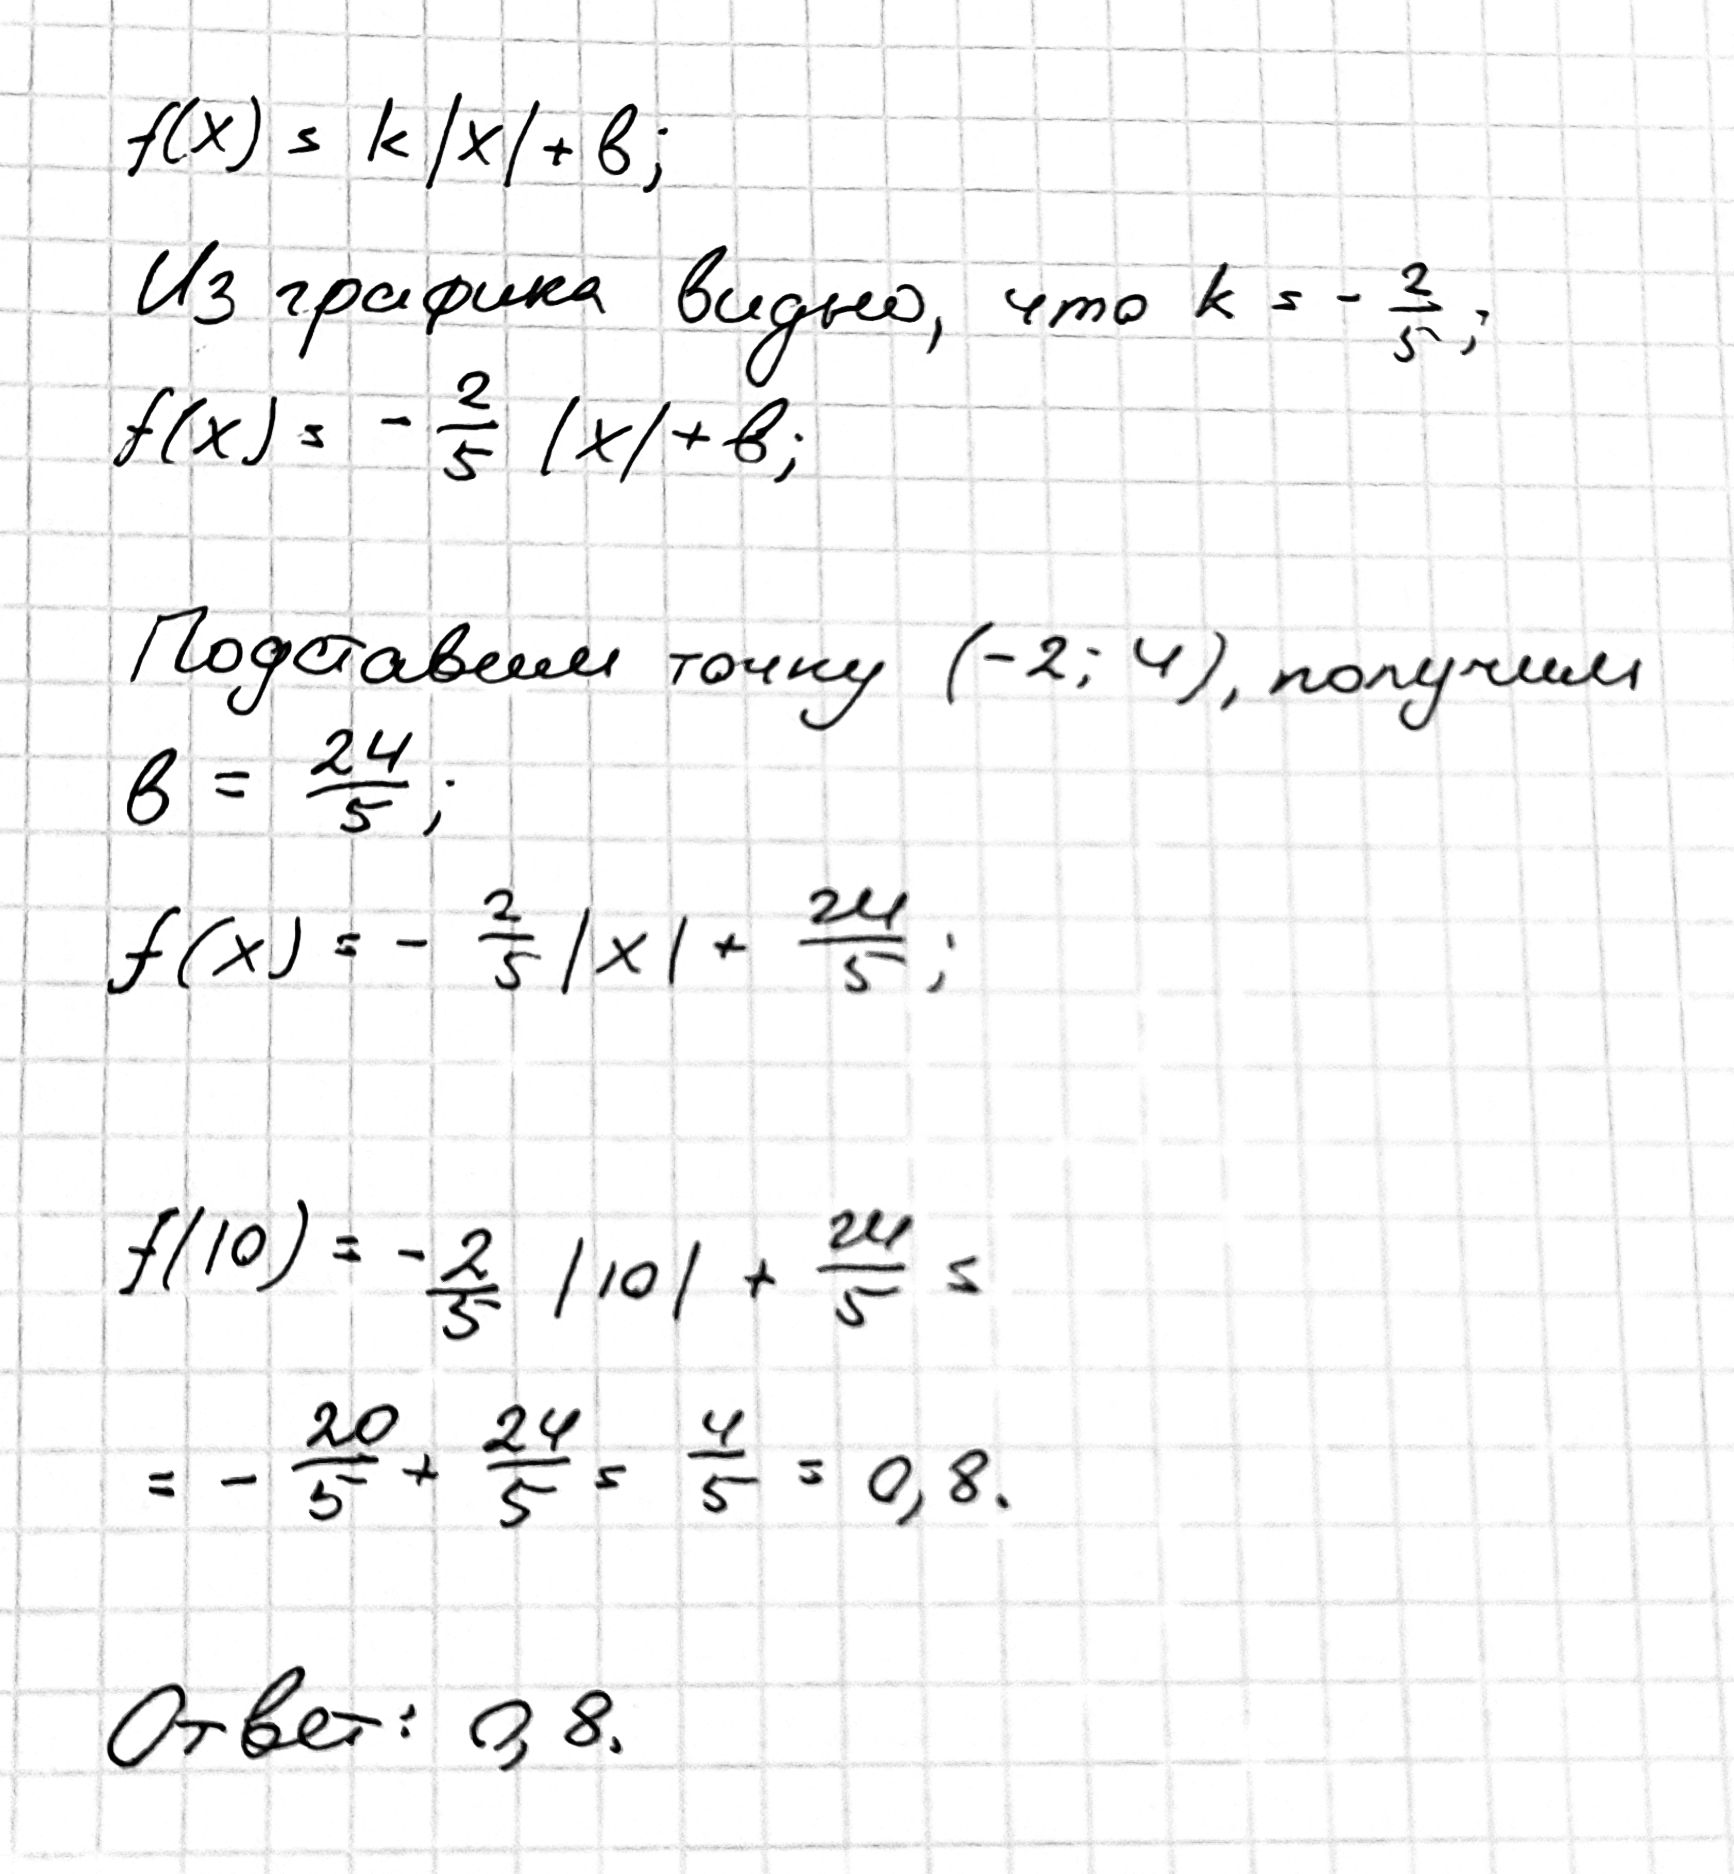 f(x) = k|x| + b;
Из графика видно, что k = - 2/5;
f(x) = - 2/5 |x| + b;
Подставим точку (-2; 4), получим
b = 24/5;
f(x) = - 2/5 |x| + 24/5;
f(10) = - 2/5 |10| + 24/5 =
= - 20/5 + 24/5 = 4/5 = 0,8.
Ответ: 0,8.